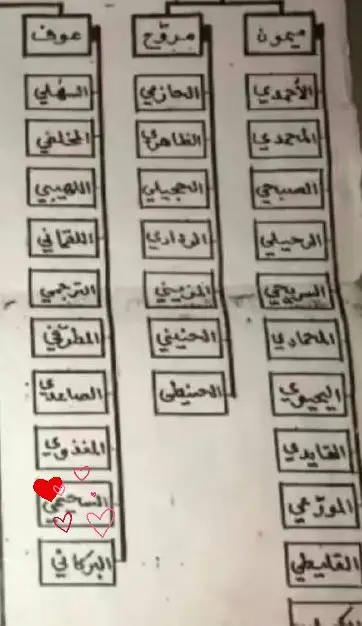 ميمون
الأحمدي
المحمدي
الصبحي
الرحيلي
السريحي
المحمادي
اليحيوي
القايدي
المورّعي
القليطي
مروّح
الحازمي
الظاهري
الحجيلي
الردادي
المزيني
الحنيني
الحنيطي
عوف
السهلي
المخلفي
اللهيبي
اللقماني
الترجمي
المطرّفي
الصاعدي
المغذوي
السحيمي
البركاني